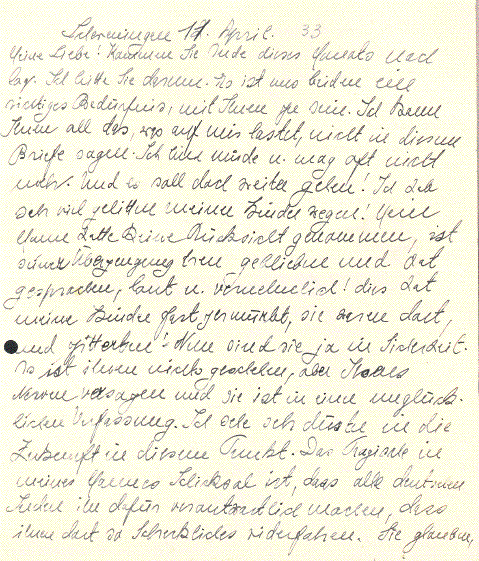 Scheveningen 17. April. 33
Meine Liebe! Kommen Sie Ende dieses Monats nach
Ich bitte Sie darum. Es ist uns beiden ein
richtiges Bedürfnis, mit Ihnen zu sein. Ich kann
Ihnen all das, was auf mir lastet, nicht in diesem
Briefe sagen. Ich bin müde u. mag oft nicht
mehr. Und es soll doch weiter gehen! Ich habe
sehr viel gelitten meiner Kinder wegen! Mein
Mann hatte keine Rücksicht genommen, ist
seiner Überzeugung treu geblieben und hat
gesprochen, laut u. vernehmlich! dies hat
meine Kinder fast zermürbt, sie waren dort,
und zitterten! Nun sind sie ja in Sicherheit.
Es ist ihnen nichts geschehen, aber
Nerven versagen und sie ist in einer unglück-
lichen Verfassung. Ich sehe sehr düster in die
Zukunft in diesem Punkt. Das Tragische in
meines Mannes Schicksal ist, dass alle deutschen
Juden ihn dafür verantwortlich machen, dass
ihnen dort so Schreckliches widerfahren. Sie glauben,